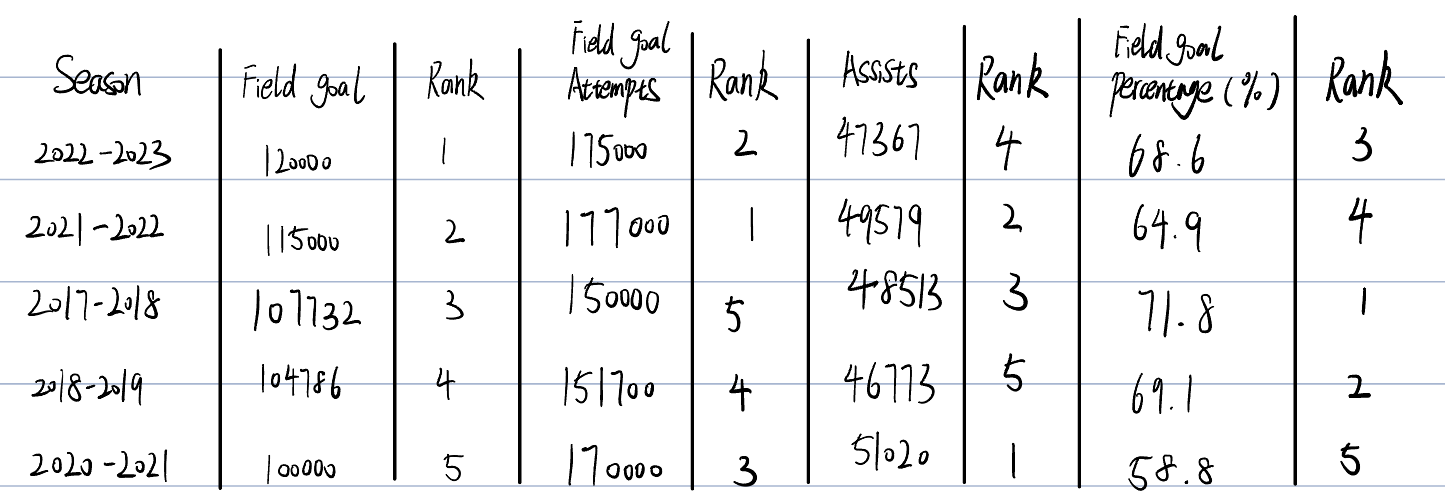 Season Field goal Rank Field goal Attempts Rank Assists Rank Field goal Percentage (%) Rank
2022-2023 120000 1 175000 2 47367 4 68.6 3
2021-2022 115000 2 177000 1 49579 2 64.9 4
2017-2018 107732 3 150000 5 48513 3 71.8 1
2018-2019 104786 4 151700 4 46773 5 69.1 2
2020-2021 100000 5 170000 3 51020 1 58.8 5